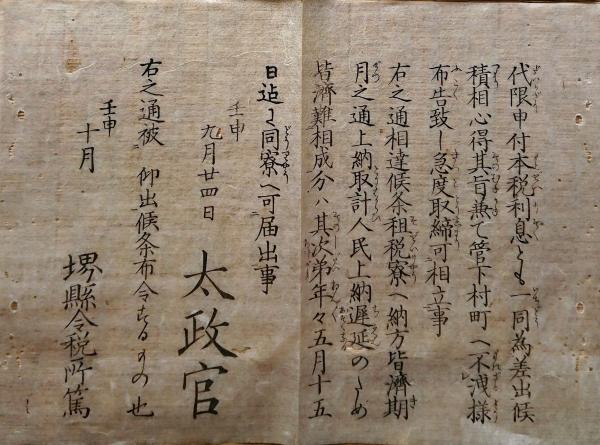 代限申付本税利息とも一同為差出候
積相心得其旨兼て管下村町へ不洩様
布告致し急度取締可相立事
右之通相達候条租税寮へ納方皆済期
月之通上納取計人民上納遅延のため
皆済難相成分ハ其次第年々五月十五
日迠ニ同寮へ可届出事
壬申
九月廿四日
太政官
右之通被 仰出候条布令するもの也
壬申
十月
堺縣令税所篤